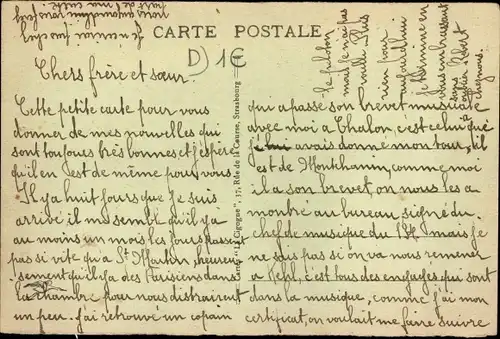 CARTE POSTALE
D) 1€
Chers frère et sœur.
Cette petite carte pour vous
donner de mes nouvelles qui
sont toujours très bonnes et j'espère
qu'il en est de même pour vous
Il y a huit jours que je suis
arrivé il me semble qu'il y a
au moins un mois les jours passent
pas si vite qu'a St Martin, heureu
sement qu'il y a des Parisiens dans
la chambre pour nous distraire
un peu. j'ai retrouvé un copain
"Cigogne", 37, Rue de la Course, Strasbourg
qui a passé son brevet musique
avec moi a Chalon, c'est celui que
j'e lui avais donné mon tour, il
est de Montchanin, comme moi
il a son brevet, on nous les a
montré au bureau, signé du
chef de musique du mais je
ne sais pas si on va nous remener
a Kehl, c'est tous des engagés qui sont
dans la musique, comme j'ai mon
certificat, on voulait me faire suivre
le peloton
mais je n'ai pas
voulu. Plus
rien pour
aujourd'hui
je termine en
vous embrassant